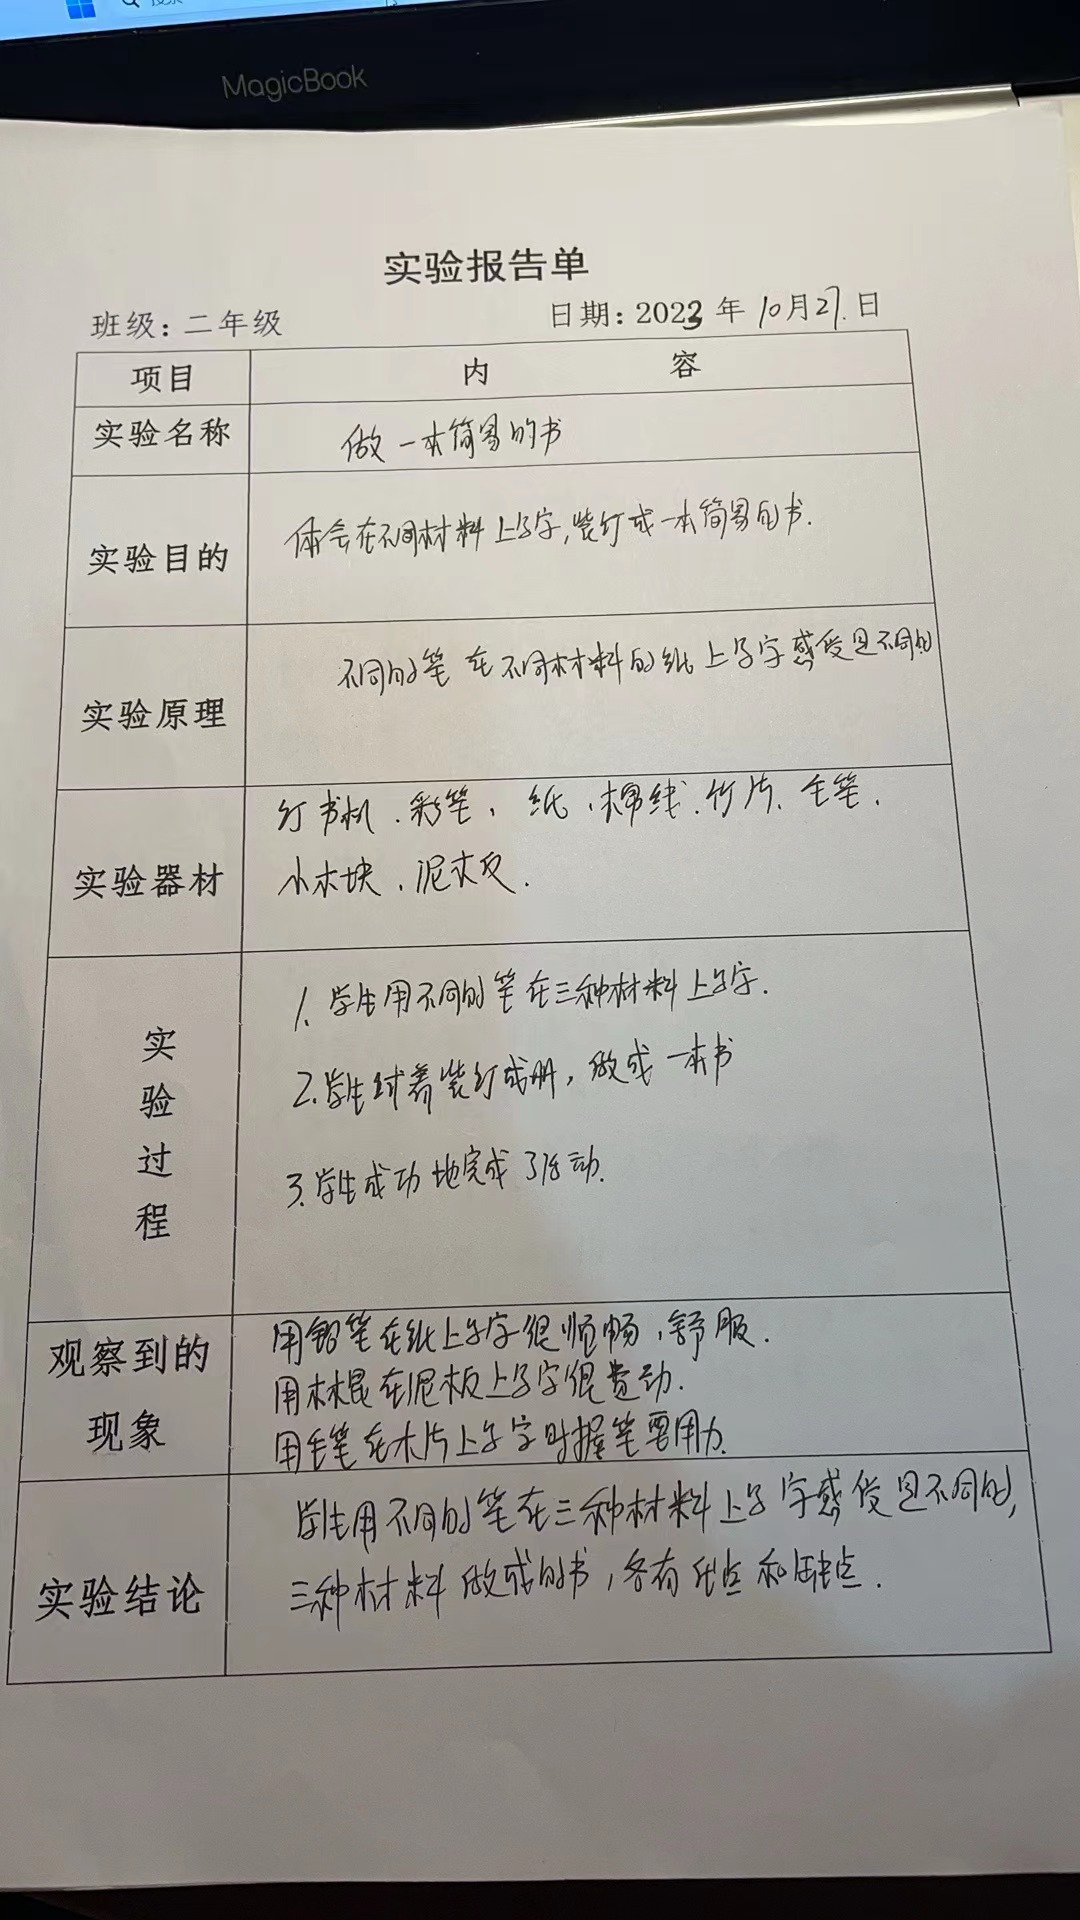 MagicBook
实验报告单
班级：二年级 日期：2023年10月27.日
项目 内容
实验名称 做一本简易的书
实验目的 体会在不同材料上写字，装订成一本简易的书.
实验原理 不同的笔在不同材料的纸上写字感受是不同的
实验器材 订书机、彩笔、纸、棉线、竹片、毛笔、
小木块、泥板.
实验过程 1. 学生用不同的笔在三种材料上写字.
2. 学生试着装订成册，做成一本书
3. 学生成功地完成了活动.
观察到的现象 用铅笔在纸上写字很顺畅，舒服.
用木棍在泥板上写字很费劲.
用毛笔在木片上写字时握笔要用力.
实验结论 学生用不同的笔在三种材料上写字感受是不同的，
三种材料做成的书，各有优点和缺点.